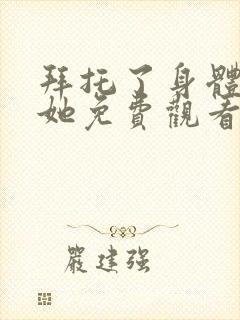 拜托了身體
她免費觀看
嚴建强